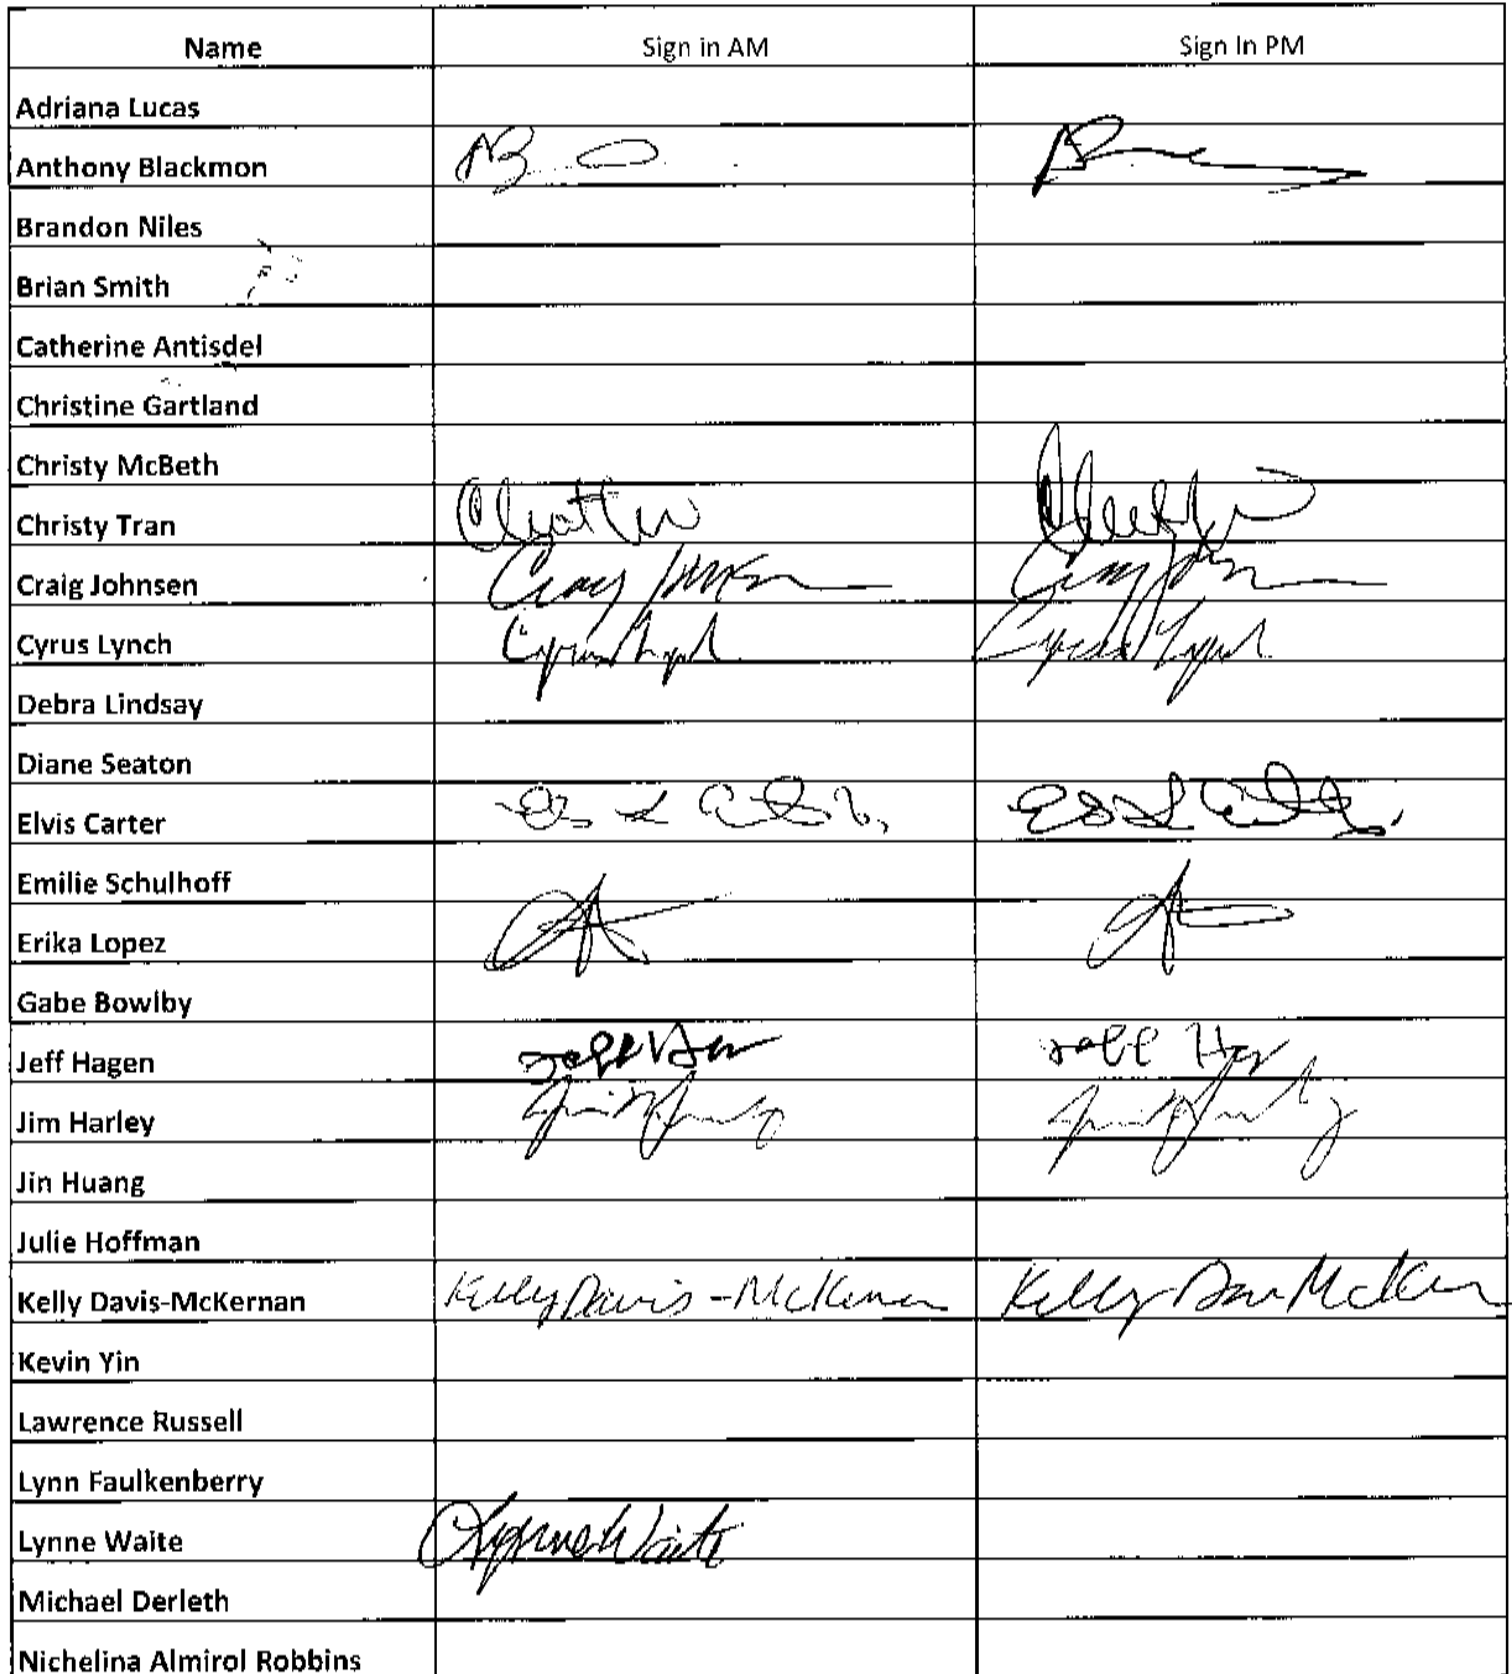 Name Sign in AM Sign In PM
Adriana Lucas
Anthony Blackmon
Brandon Niles
Brian Smith
Catherine Antisdel
Christine Gartland
Christy McBeth
Christy Tran
Craig Johnsen
Cyrus Lynch
Debra Lindsay
Diane Seaton
Elvis Carter
Emilie Schulhoff
Erika Lopez
Gabe Bowlby
Jeff Hagen
Jim Harley
Jin Huang
Julie Hoffman
Kelly Davis-McKernan Kelly Davis-McKernan
Kevin Yin
Lawrence Russell
Lynn Faulkenberry
Lynne Waite Lynne Waite
Michael Derleth
Nichelina Almirol Robbins